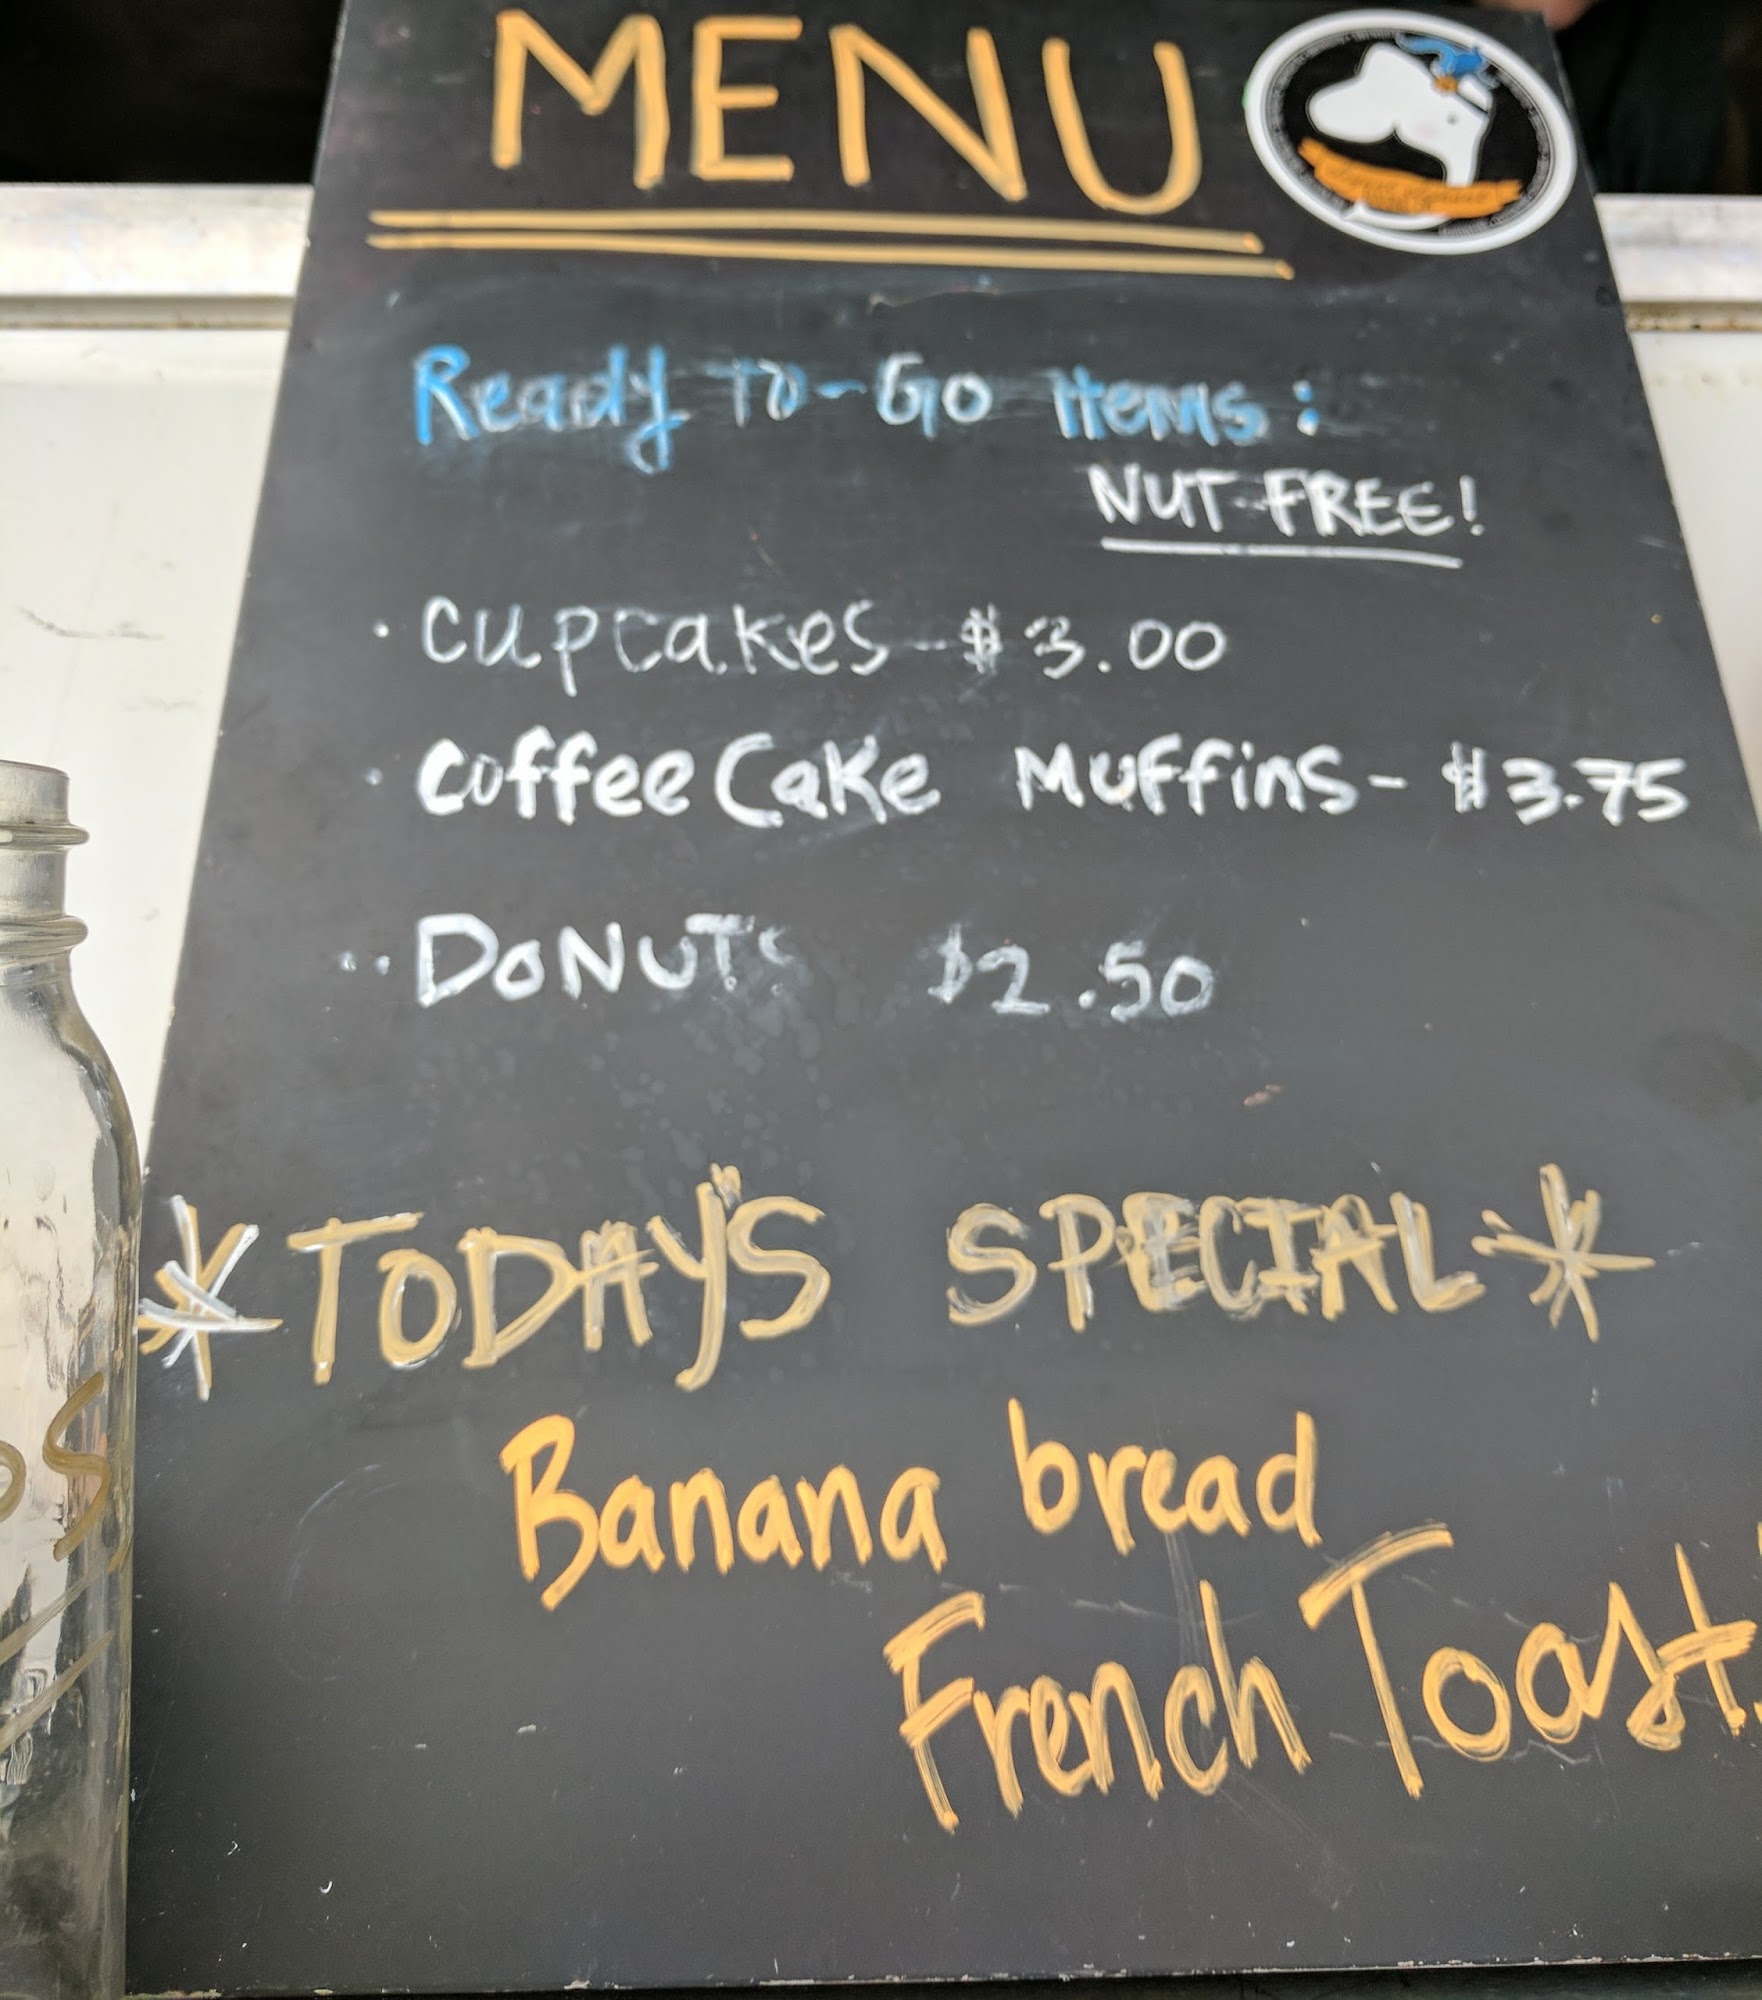 MENU
Ready To-Go Items:
NUT FREE!
· cupcakes - $3.00
· Coffee Cake Muffins - $3.75
·· DONUTS $2.50
*TODAY'S SPECIAL*
Banana bread
French Toast!